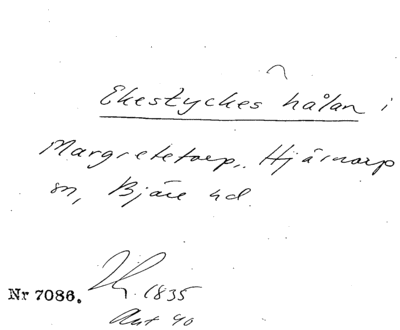 Ekestyckes hålan i
Margretetorp, Hjärnarp
sn, Bjäre hd
Nr 7086. 1835
Ant 40